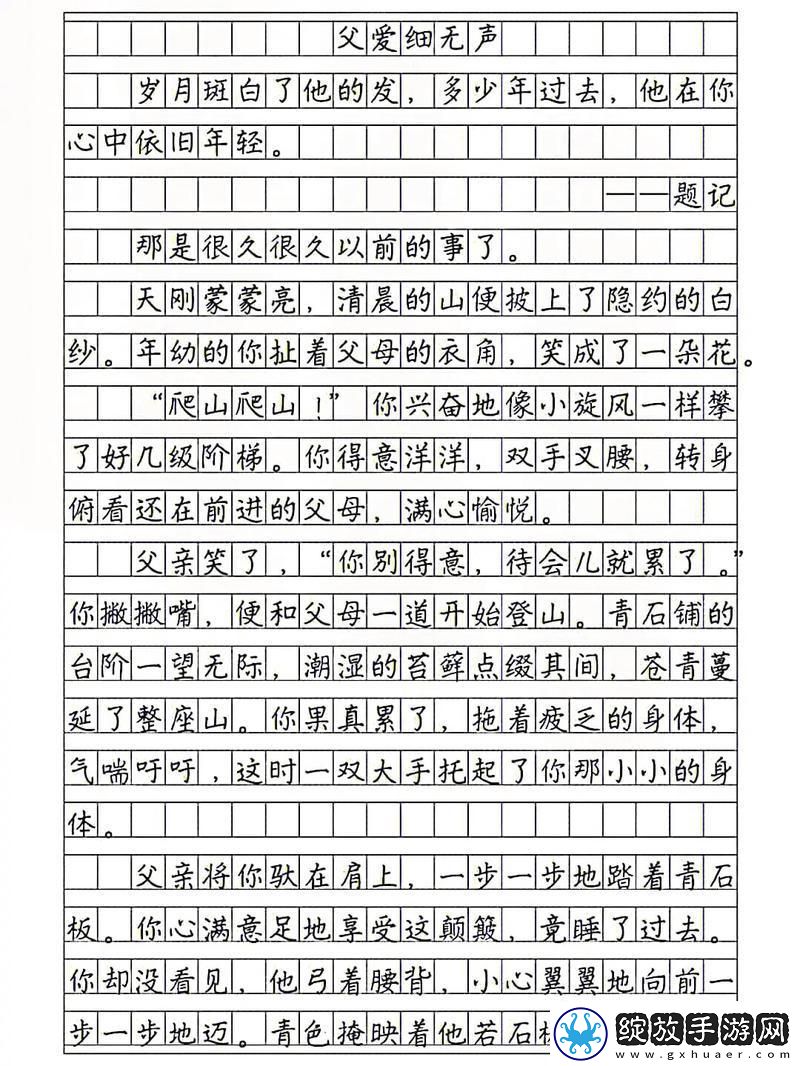 父爱细无声
岁月斑白了他的发，多少年过去，他在你
心中依旧年轻。
——题记
那是很久很久以前的事了。
天刚蒙蒙亮，清晨的山便披上了隐约的白
纱。年幼的你扯着父母的衣角，笑成了一朵花。
“爬山爬山！”你兴奋地像小旋风一样攀
了好几级阶梯。你得意洋洋，双手叉腰，转身
俯看还在前进的父母，满心愉悦。
父亲笑了，“你别得意，待会儿就累了。”
你撇撇嘴，便和父母一道开始登山。青石铺的
台阶一望无际，潮湿的苔藓点缀其间，苍青蔓
延了整座山。你果真累了，拖着疲乏的身体，
气喘吁吁，这时一双大手托起了你那小小的身
体。
父亲将你驮在肩上，一步一步地踏着青石
板。你心满意足地享受这颠簸，竟睡了过去。
你却没看见，他弓着腰背，小心翼翼地向前一
步一步地迈。青色掩映着他若石
绽放手游网
www.gxhuaer.com